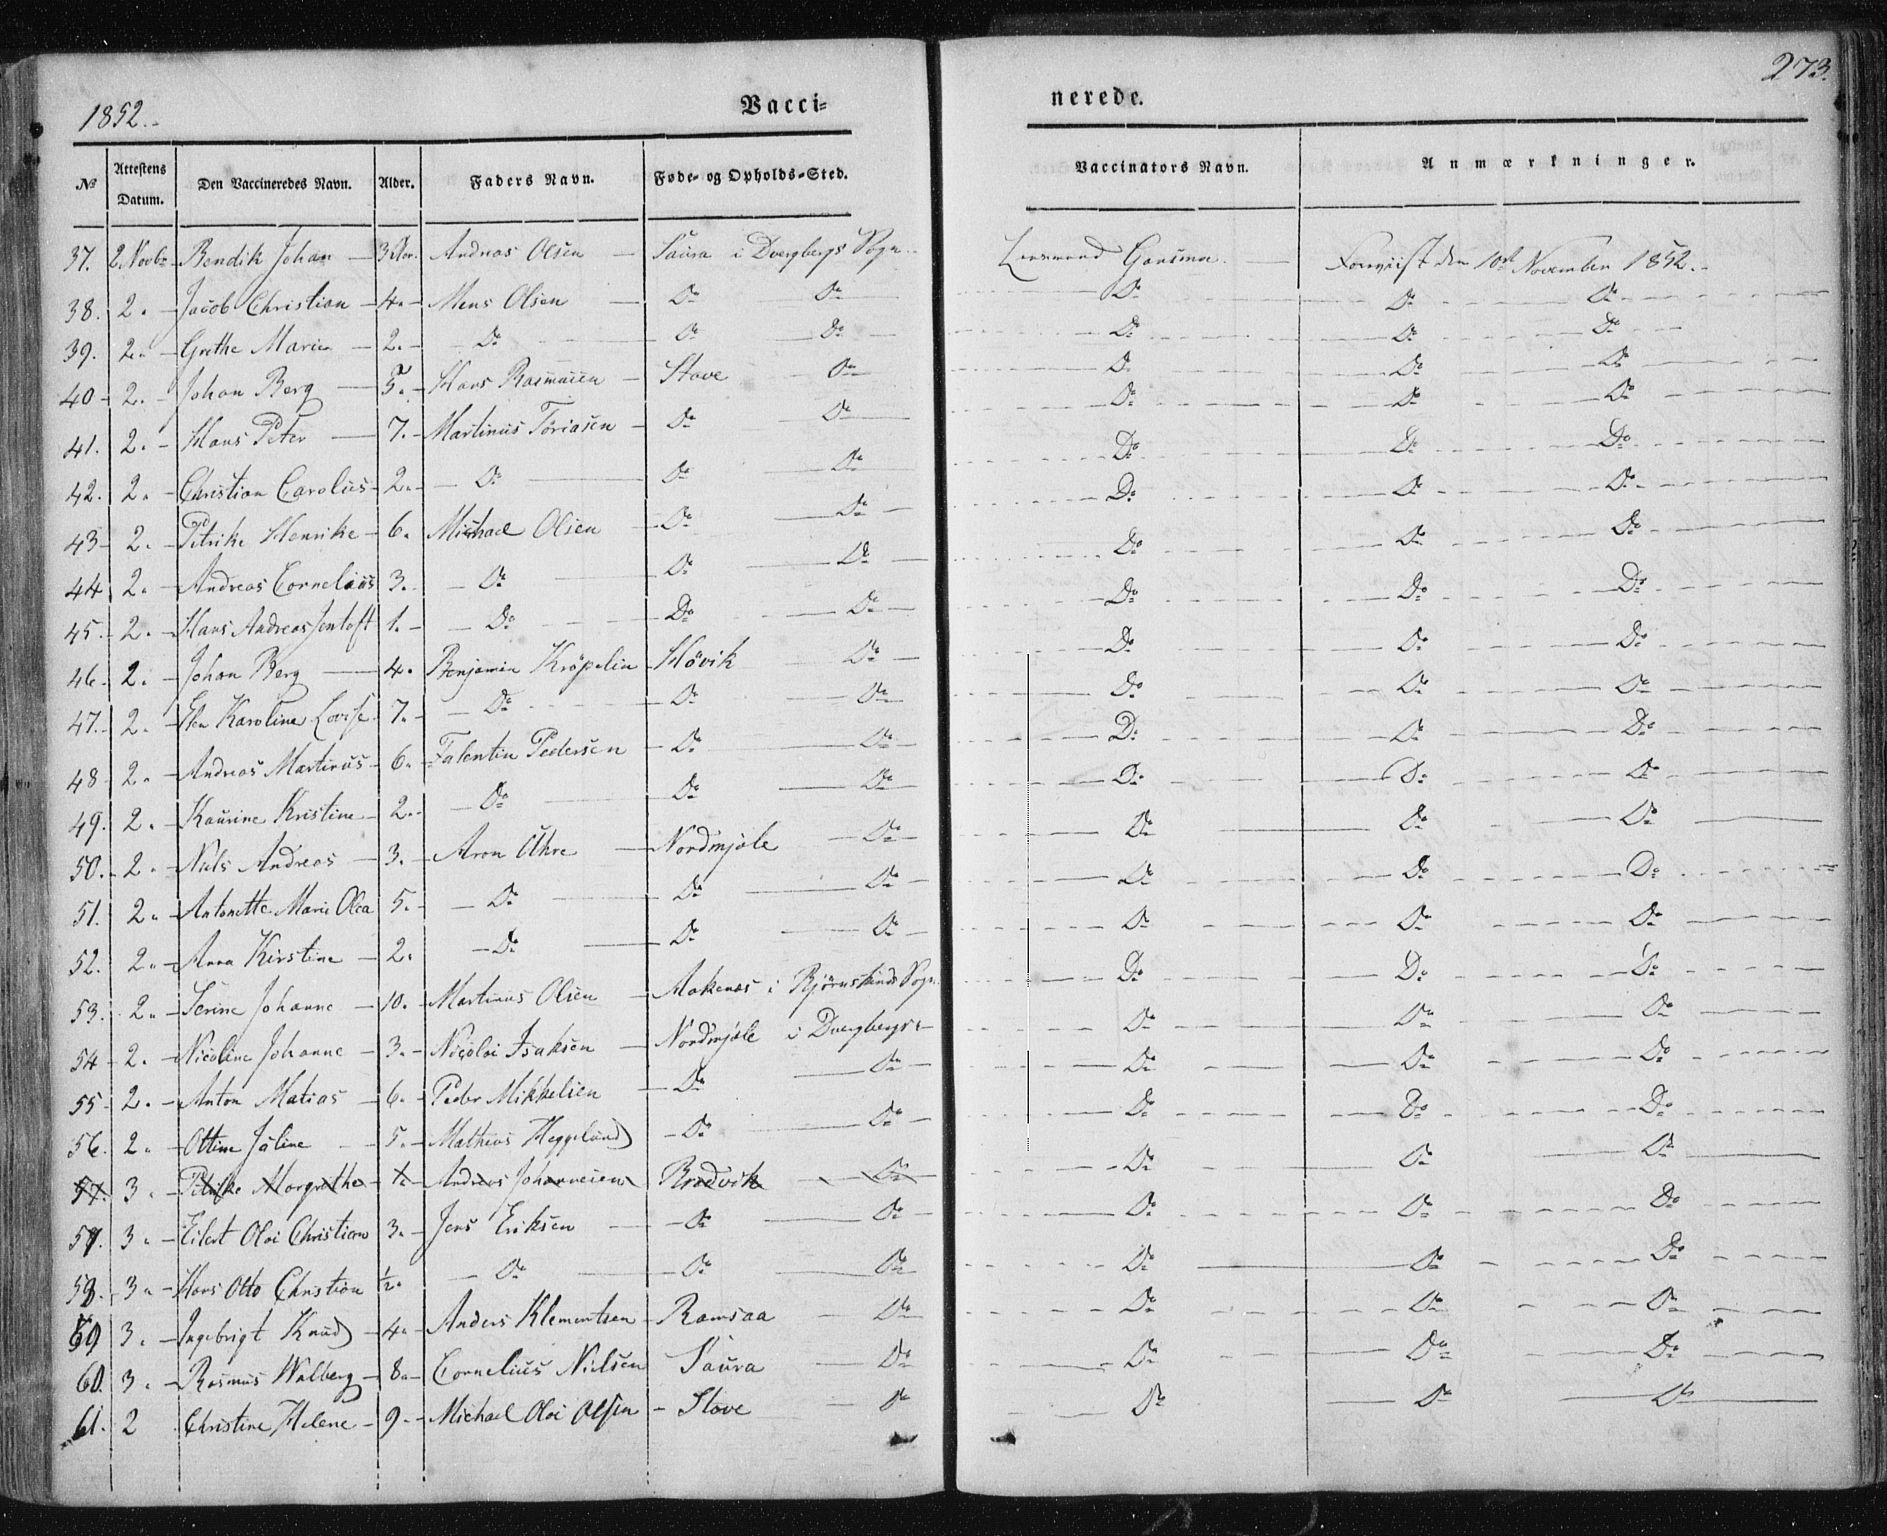 1852.
Vacci=
nerede.
273.
No Attestens Datum. Den Vaccineredes Navn. Alder. Faders Navn. Føde- og Opholds-Sted. Vaccinators Navn. Anmærkninger.
37. 2 Novbr Bendik Johan 3 Aar. Andreas Olsen Saura i Dverbergs Sogn. Lensmand Forviist den 10de November 1852.
38. 2. Jacob Christian 4. Mons Olsen Do Do Do Do Do
39. 2. Grethe Marie 2. Do Do Do Do Do Do
40 2. Johan Berg 5. Hans Rasmusen Stave Do Do Do Do
41. 2. Hans Peter 7. Martinus Toriasen Do Do Do Do Do
42. 2. Christian Carolus 2. Do Do Do Do Do Do
43 2. Petrike Henrike 6. Michael Olsen Do Do Do Do Do
44 2. Andreas Cornelius 3. Do Do Do Do Do Do
45. 2. Hans Andreas Jentoft 1. Do Do Do Do Do Do
46. 2. Johan Berg 4. Benjamin Kröpelin Hövik Do Do Do Do
47. 2. Elen Karoline Lovise 7. Do Do Do Do Do Do
48 2. Andreas Martinus 6. Falentin Pedersen Do Do Do Do Do
49. 2. Kaurine Kristine 2. Do Do Do Do Do Do
50. 2. Niels Andreas 3. Aron Åhre Nordmjele Do Do Do Do
51. 2. Antonette Marie Olea 5. Do Do Do Do Do Do
52. 2. Anna Kirstine 2. Do Do Do Do Do Do
53. 2. Serine Johanne 10. Martinus Olsen Aakenas i Bjørnskinds Sogn Do Do Do
54 2. Nicoline Johanne 3. Nicolai Isaksen Nordmjele i Dverbergs Do Do Do
55 2. Anton Matias 6. Peder Mikkelsen Do Do Do Do Do
56 2. Ottine Jaline 5. Mathias Heggelund Do Do Do Do Do
57. 3. Petrike Margrethe ½ Andreas Johannesen Brødvik Do Do Do Do
57. 3. Eilert Olai Christian 3. Jens Eriksen Do Do Do Do Do
58. 3. Hans Otto Christian ½. Do Do Do Do Do Do
59 3. Ingebrigt Knud 4. Anders Klementsen Ramsaa Do Do Do Do
60. 3. Rasmus Walberg 8. Cornelius Nielsen Saura Do Do Do Do
61. 2 Christine Helene 9. Michael Olai Olsen Stave Do Do Do Do